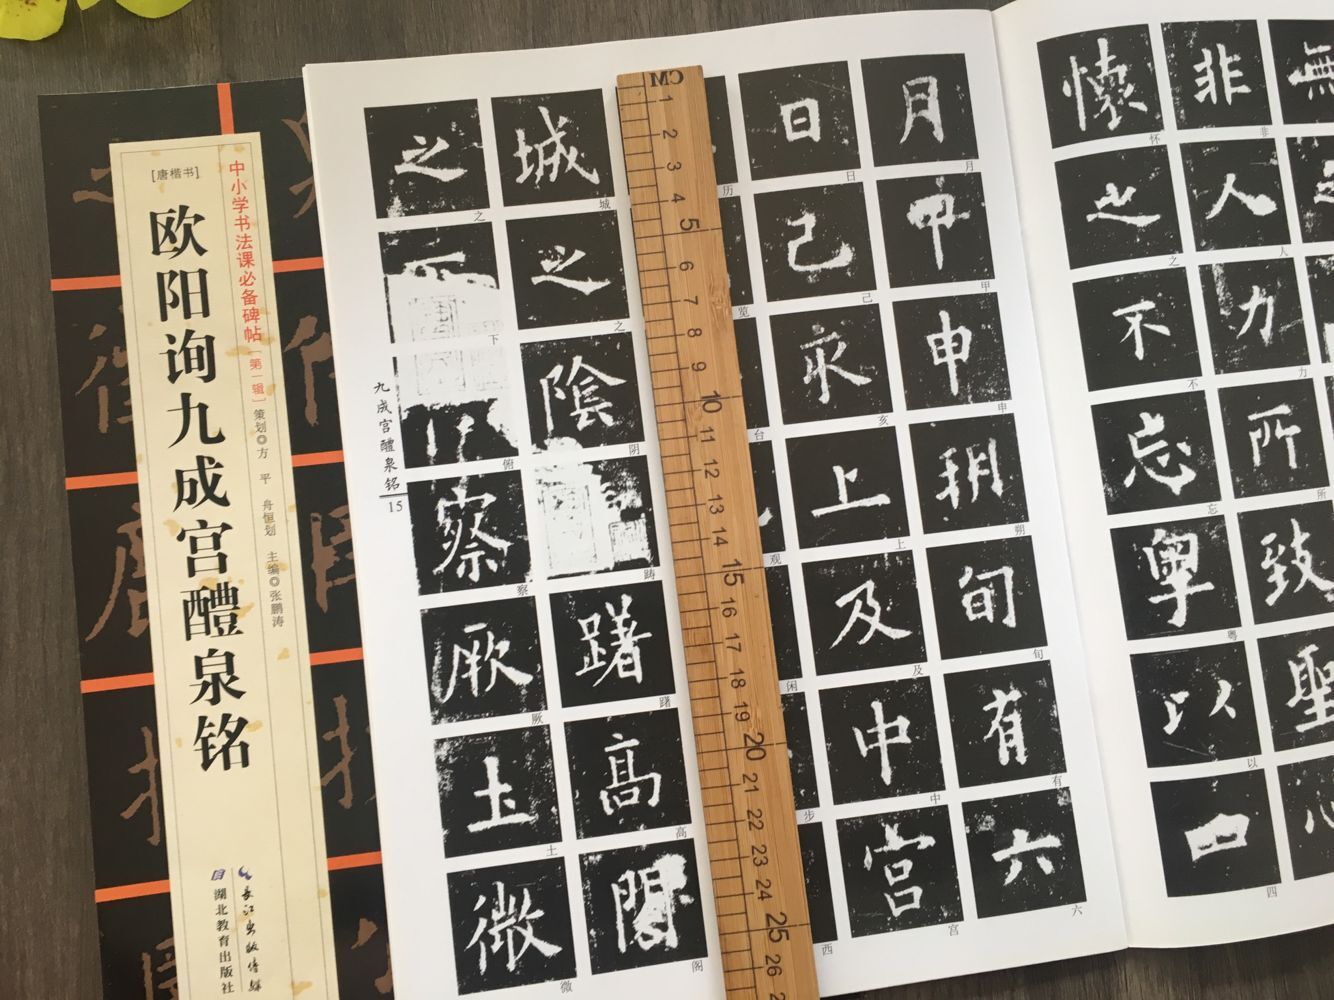 [唐楷书]
中小学书法课必备碑帖[第一辑]
欧阳询九成宫醴泉铭
策划◎方 平 舟恒划 主编◎张鹏涛
长江出版传媒
湖北教育出版社
懷 怀
之 之
不 不
忘 忘
粤 粤
以 以
四 四
非 非
人 人
力 力
所 所
致 致
聖
心
無
月 月
甲 甲
申 申
朔 朔
旬 旬
有 有
六 六
日 日
己 己
亥 亥
上 上
及 及
中 中
宫 宫
历
览
台
观
闲
步
西
城 城
之 之
陰 阴
踌
躇 躇
高 高
閣 阁
之 之
下
俯
察 察
厥 厥
土 土
微 微
九成宫醴泉铭
15
CM
1
2
3
4
5
6
7
8
9
10
11
12
13
14
15
16
17
18
19
20
21
22
23
24
25
26